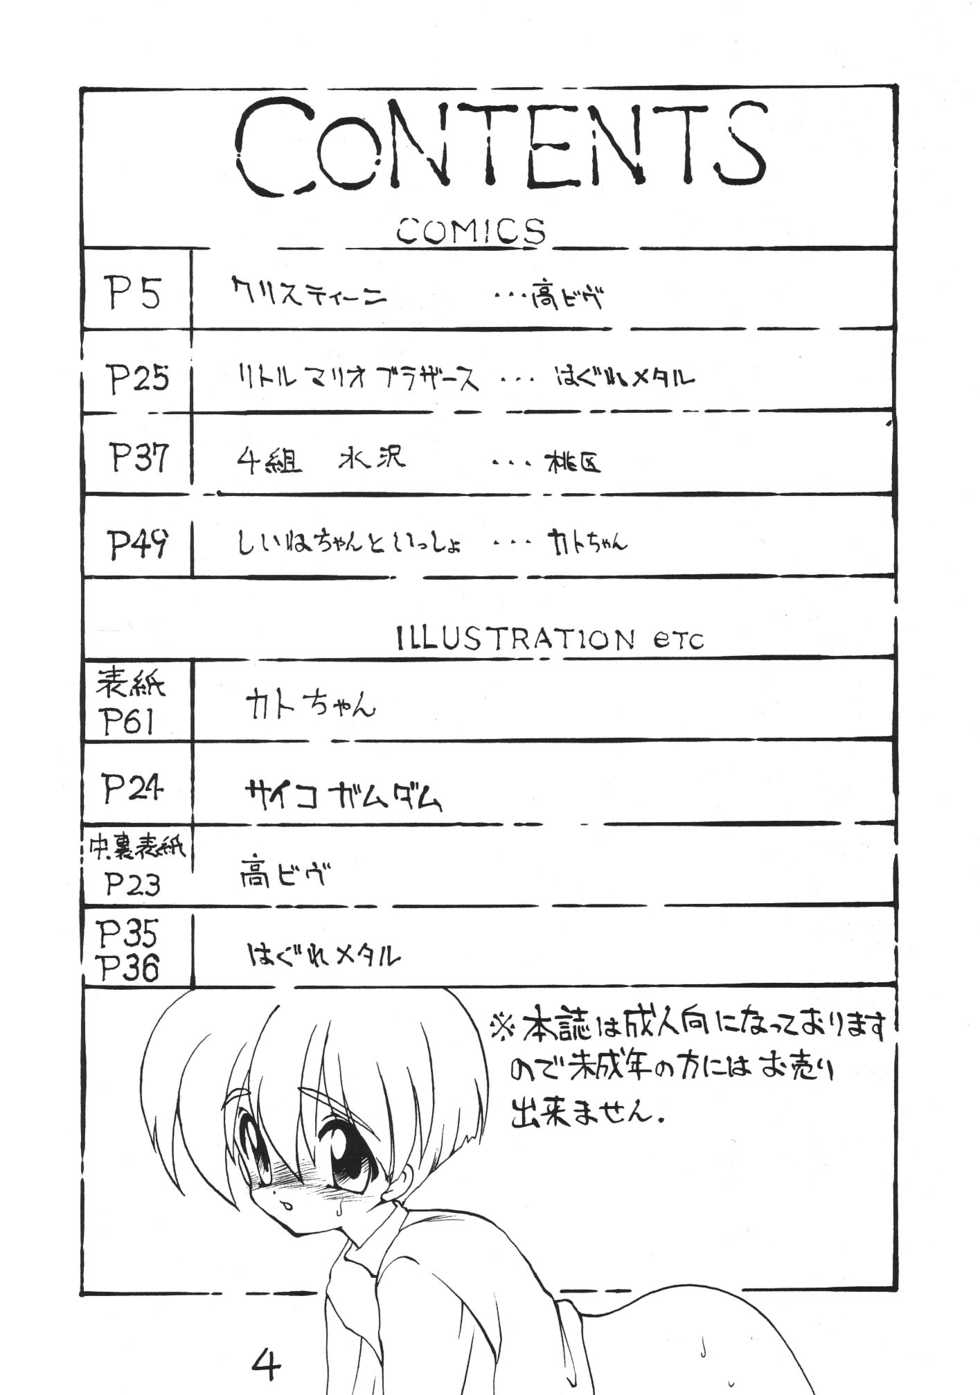 CONTENTS
COMICS
P5 クリスティーン ･･･高ビヴ
P25 リトルマリオブラザース ･･･ はぐれメタル
P37 4組 水沢 ･･･ 桃匠
P49 しいねちゃんといっしょ ･･･ カトちゃん
ILLUSTRATION etc
表紙
P61 カトちゃん
P24 サイコガムダム
中裏表紙
P23 高ビヴ
P35
P36 はぐれメタル
※本誌は成人向になっております
ので未成年の方にはお売り
出来ません.
4